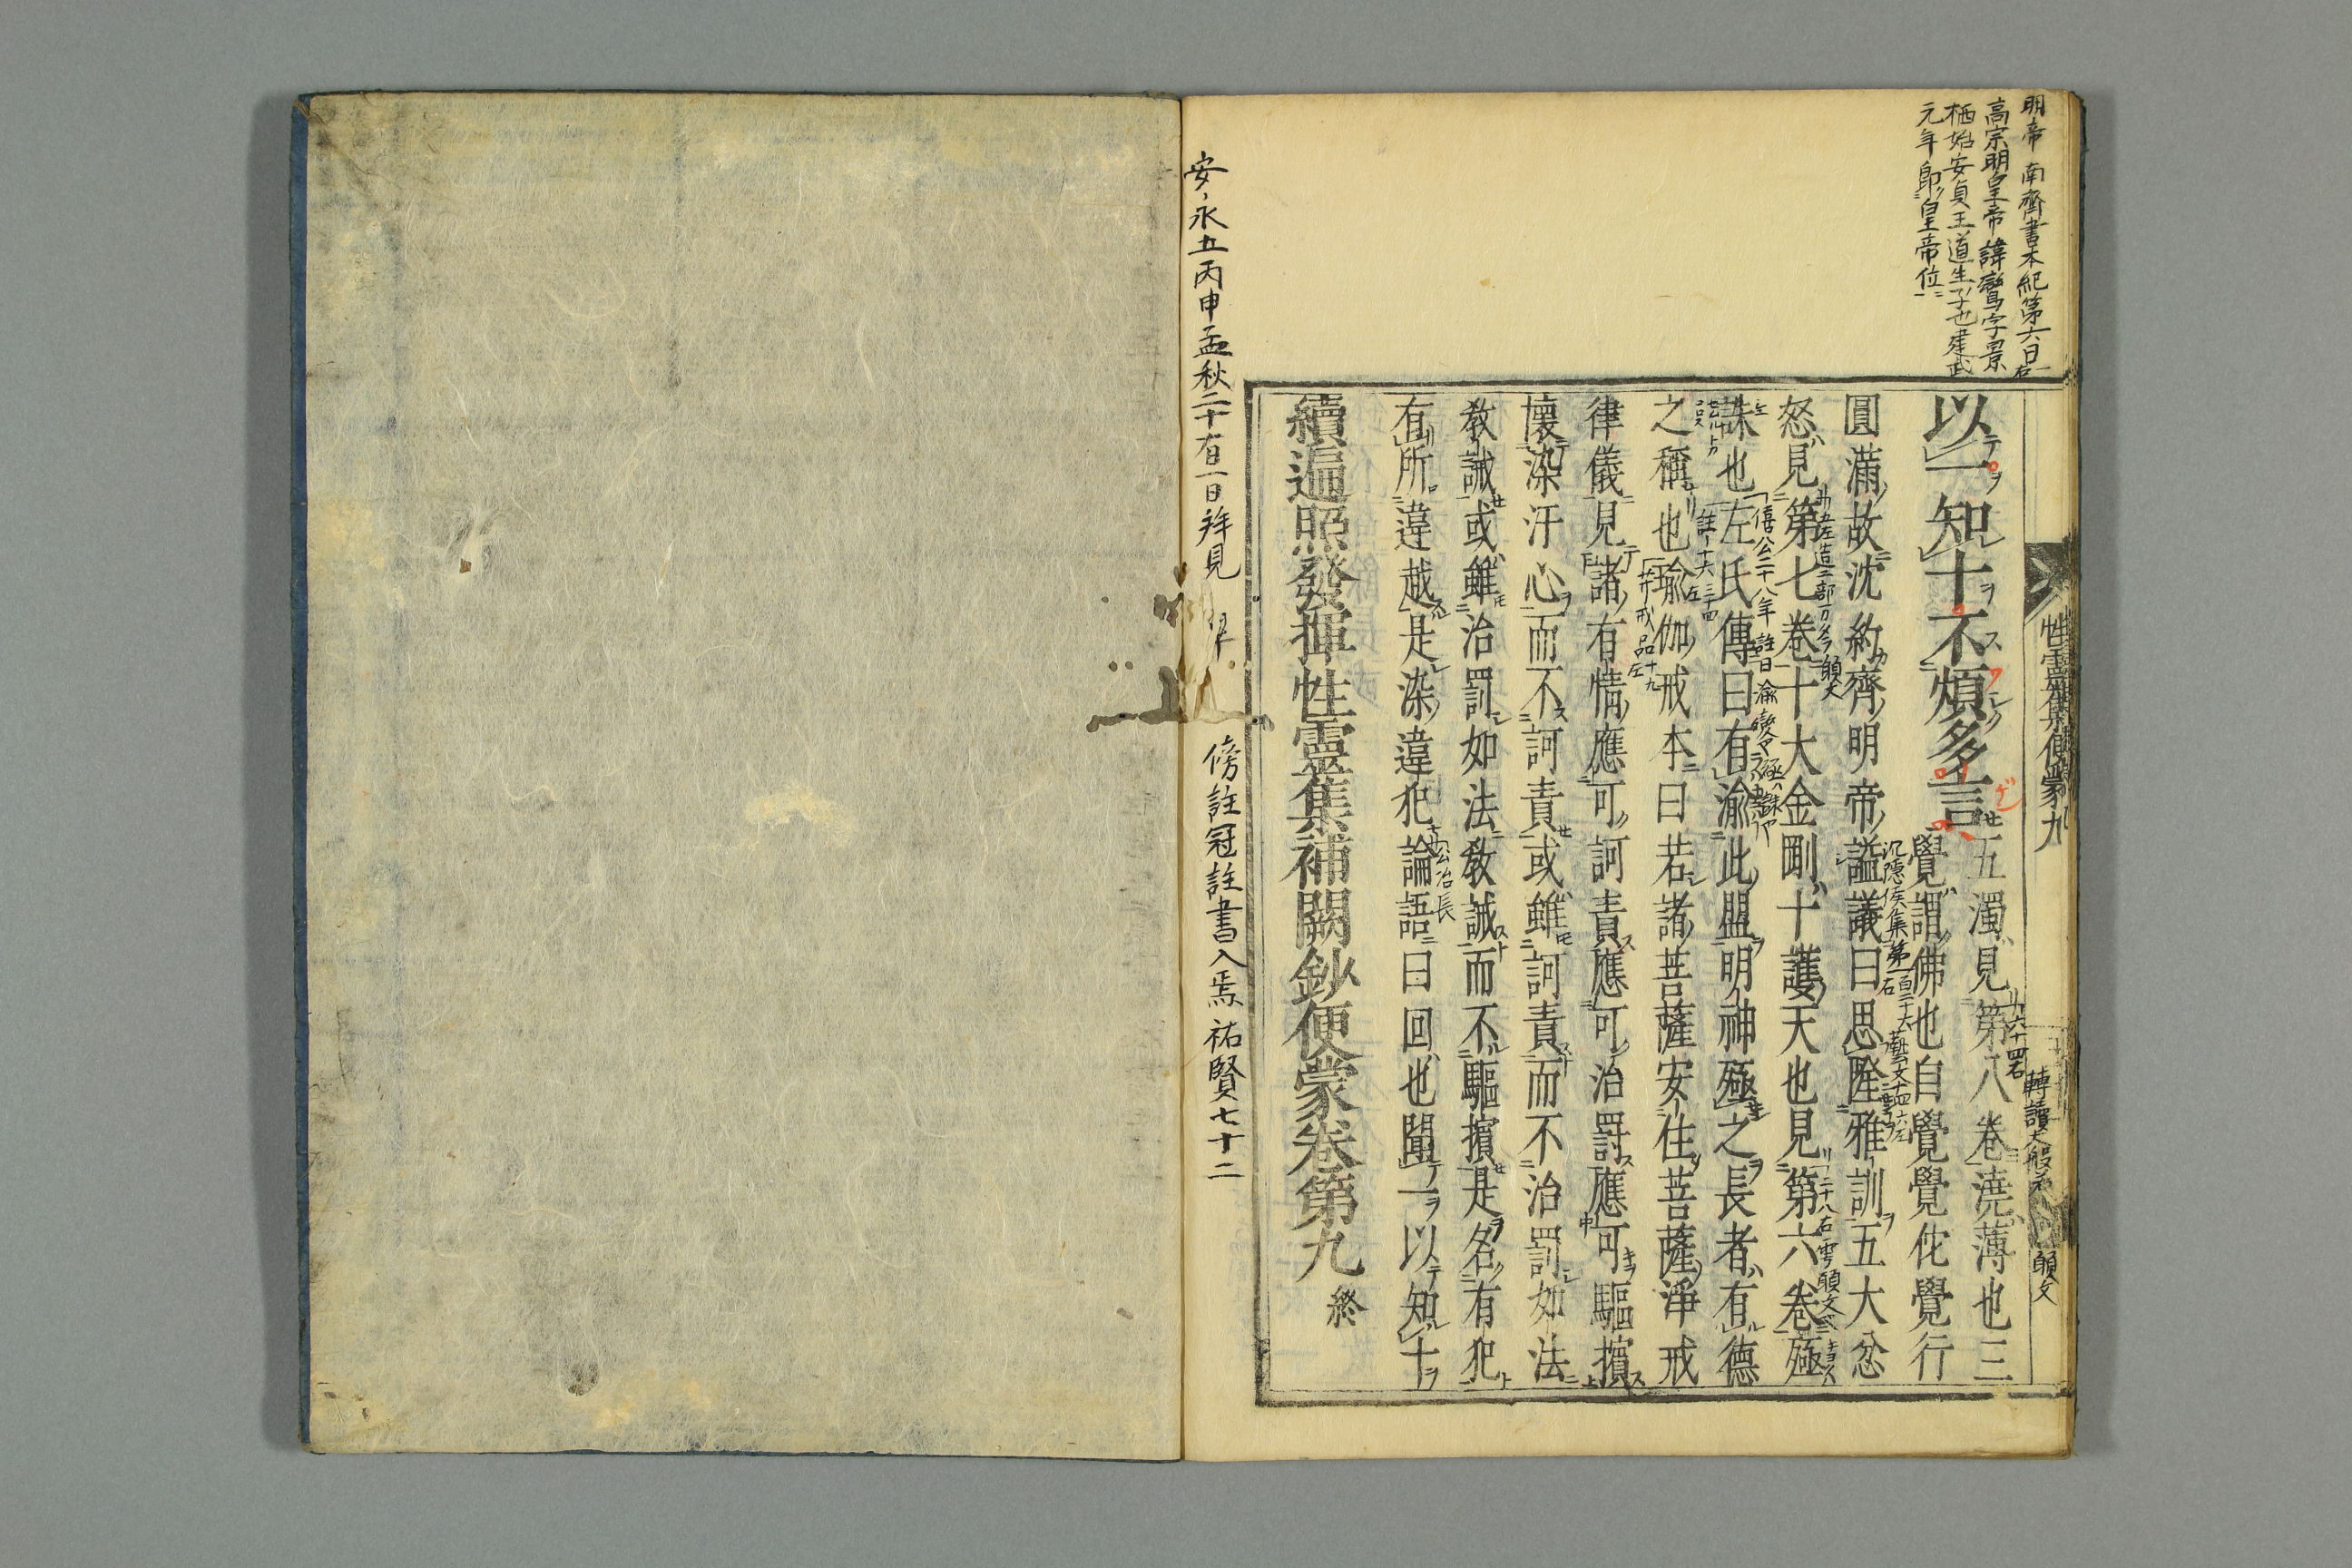 明帝 南齊書本紀第六曰
高宗明皇帝諱鸞字景
栖始安貞王道生子也建武
元年即皇帝位
性靈集便蒙九
轉讀大般若
願文
以一知十不煩多言五濁見第八卷澆薄也三
覺謂佛也自覺覺佗覺行
圓滿故沈約齊明帝謚議曰思隆雅訓五大忿
沉隱侯集
怒見第七卷十大金剛十護天也見第六卷殛
誅也左氏傳曰有渝此盟明神殛之長者有德
僖公二十八年註曰渝變
之稱也瑜伽戒本曰若諸菩薩安住菩薩淨戒
律儀見諸有情應可訶責應可治罰應可驅擯
懷染汗心而不訶責或雖訶責而不治罰如法
教誡或雖治罰如法教誡而不驅擯是名有犯
有所違越是染違犯論語曰回也聞一以知十
公冶長
續遍照發揮性靈集補闕鈔便蒙卷第九 終
安永五丙申孟秋二十有一日拜見
傍註冠註書入焉 祐賢七十二